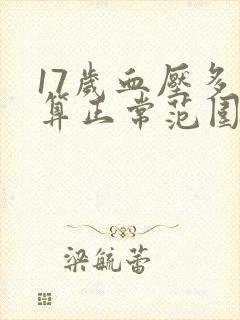 17歲血壓多
算正常范圍
梁毓蕾